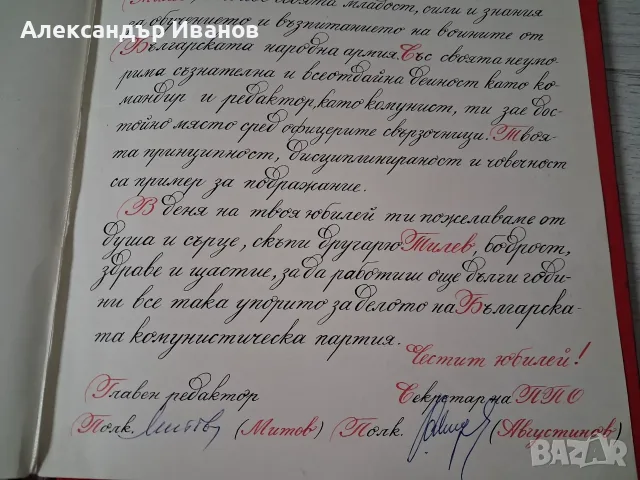 Александър Иванов
младост, сили и знания
за обучението и възпитанието на воините от
Българската народна армия. Със своята неупо-
рима съзнателна и всеотдайна дейност като ко-
мандир и редактор, като комунист, ти зае дос-
тойно място сред офицерите свързочници. Твоя-
та принципност, дисциплинираност и човечност
са пример за подражание.
В деня на твоя юбилей ти пожелаваме от
душа и сърце, скъпи другарю Тилев, бодрост,
здраве и щастие, за да работиш още дълги годи-
ни все така упорито за делото на Българска-
та комунистическа партия.
Честит юбилей!
Главен редактор Секретар на ППО
Полк. (Митов) Полк. (Августинов)
BAZAR